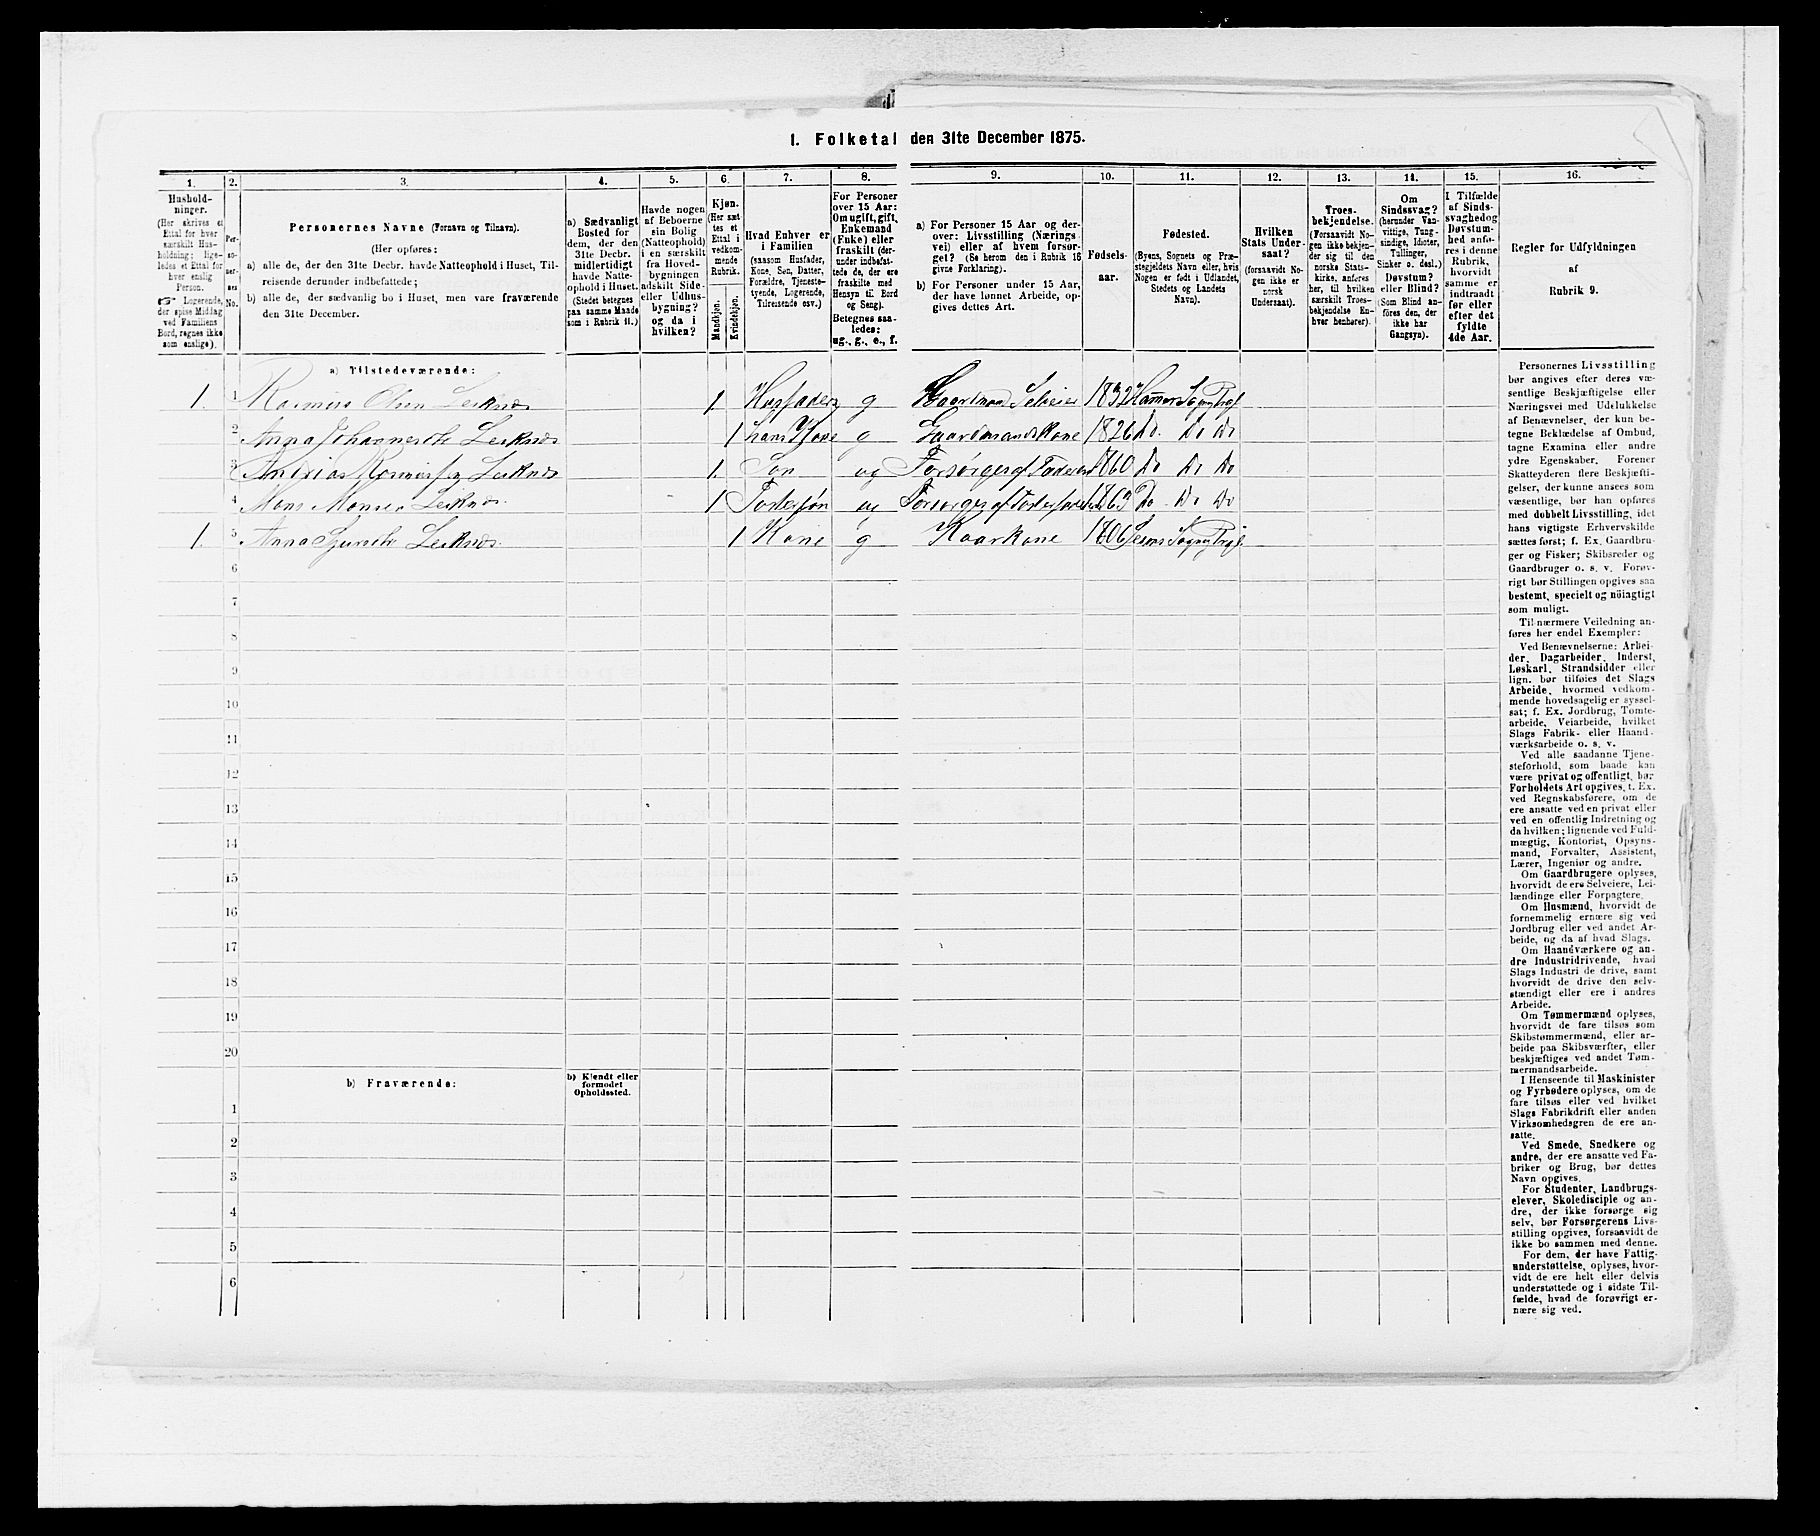 1. Folketal den 31te December 1875.
1. 2. 3. 4. 5. 6. 7. 8. 9. 10. 11. 12. 13. 14. 15. 16.
Hushold-
ninger.
(Her skrives et
Ettal for hver
særskilt Hus-
holdning; lige-
ledes et Ettal for
hver enslig
Person.
☞ Logerende,
der spise Middag
ved Familiens
Bord, regnes ikke
som enslige).
Per-
so-
ner-
nes
No.
Personernes Navne (Fornavn og Tilnavn).
(Her opføres:
a) alle de, der den 31te Decbr. havde Natteophold i Huset, Til-
reisende derunder indbefattede;
b) alle de, der sædvanlig bo i Huset, men vare fraværende
den 31te December.
a) Sædvanligt
Bosted for
dem, der den
31te Decbr.
midlertidigt
havde Natte-
ophold i Huset.
(Stedet betegnes
paa samme Maade
som i Rubrik 11.)
Havde nogen
af Beboerne
sin Bolig
(Natteophold)
i en særskilt
fra Hoved-
bygningen
adskilt Side-
eller Udhus-
bygning?
og da i
hvilken?
Kjøn.
(Her sæt
tes et
Ettal i
vedkom-
mende
Rubrik.
Mandkjøn.
Kvindekjøn.
Hvad Enhver er
i Familien
(saasom Husfader,
Kone, Søn, Datter,
Forældre, Tjeneste-
tyende, Logerende,
Tilreisende osv.)
For Personer
over 15 Aar:
Om ugift, gift,
Enkemand
(Enke) eller
fraskilt (der-
under indbefat-
tede de, der ere
fraskilte med
Hensyn til Bord
og Seng).
Betegnes saa-
ledes:
ug., g., e., f.
a) For Personer 15 Aar og der-
over: Livsstilling (Nærings
vei) eller af hvem forsør-
get? (Se herom den i Rubrik 16
givne Forklaring).
b) For Personer under 15 Aar,
der have lønnet Arbeide, op-
gives dettes Art.
Fødsels-
aar.
Fødested.
(Byens, Sognets og Præ-
stegjeldets Navn eller, hvis
Nogen er født i Udlandet,
Stedets og Landets
Navn).
Hvilken
Stats Under-
saat?
(forsaavidt No-
gen ikke er
norsk
Undersaat).
Troes-
bekjendelse.
(Forsaavidt No-
gen ikke bekjen-
der sig til den
norske Stats-
kirke, anføres
her, til hvilken
særskilt Troes-
bekjendelse En-
hver henhører).
Om
Sindssvag?
(herunder Van-
vittige, Tung-
sindige, Idioter,
Tullinger,
Sinker o. desl.)
Døvstum?
eller Blind?
(Som Blind an-
føres den, der
ikke har
Gangsyn).
I Tilfælde
af Sinds-
svaghed og
Døvstum-
hed anfø-
res i denne
Rubrik,
hvorvidt
samme er
indtraadt
før eller
efter det
fyldte
4de Aar.
Regler for Udfyldningen
af
Rubrik 9.
a) Tilstedeværende:
1. 1 Rasmus Olsen Leiknes 1. Husfader g Gaardmand Selveier 1832 Hammer Sogn Prgl
2 Anna Johannesdr Leiknes 1 hans Kone g Gaardmandskone 1826 Do. Do Do
3 Andreas Rasmussen Leiknes 1. Søn ug Forsørges af Faderen 1860 Do Do Do
4 Mons Monsen Leiknes 1 Fostersøn ug Forsørges af Fosterfaderen Do. Do Do
1. 5 Anna Leiknes 1 Kone g Kaarkone 1806 Sogn Prgl.
6
7
8
9
10
11
12
13
14
15
16
17
18
19
20
b) Fraværende:
b) Kjendt eller
formodet
Opholdssted.
1
2
3
4
5
6
Personernes Livsstilling
bør angives efter deres væ-
sentlige Beskjæftigelse eller
Næringsvei med Udelukkelse
af Benævnelser, der kun be-
tegne Beklædelse af Ombud,
tagne Examina eller andre
ydre Egenskaber. Forener
Skatteyderen flere Beskjæfti-
gelser, der kunne ansees som
væsentlige, bør han opføres
med dobbelt Livsstilling, idet
hans vigtigste Erhvervskilde
sættes først; f. Ex. Gaardbru-
ger og Fisker; Skibsreder og
Gaardbruger o. s. v. Forøv-
rigt bør Stillingen opgives saa
bestemt, specielt og nöiagtigt
som muligt.
Til nærmere Veiledning an-
føres her endel Exempler:
Ved Benævnelserne: Arbei-
der, Dagarbeider, Inderst,
Løskarl, Strandsidder eller
lign. bør tilføies det Slags
Arbeide, hvormed vedkom-
mende hovedsagelig er syssel-
sat; f. Ex. Jordbrug, Tomte-
arbeide, Veiarbeide, hvilket
Slags Fabrik- eller Haand-
værksarbeide o. s. v.
Ved alle saadanne Tjene-
steforhold, som baade kan
være privat og offentligt, bør
Forholdets Art opgives, t. Ex.
ved Regnskabsførere, om de
ere ansatte ved en privat eller
ved en offentlig Indretning og
da hvilken; lignende ved Fuld-
mægtig, Kontorist, Opsyns-
mand, Forvalter, Assistent,
Lærer, Ingeniør og andre.
Om Gaardbrugere oplyses,
hvorvidt de ere Selveiere, Lei-
lændinge eller Forpagtere.
Om Husmænd, hvorvidt de
fornemmelig ernære sig ved
Jordbrug eller ved andet Ar-
beide, og da af hvad Slags.
Om Haandværkere og an-
dre Industridrivende, hvad
Slags Industri de drive, samt
hvorvidt de drive den selv-
stændigt eller ere i andres
Arbeide.
Om Tømmermænd oplyses,
hvorvidt de fare tilsøs som
Skibstømmermænd, eller ar-
beide paa Skibsværfter, eller
beskjæftiges ved andet Tøm-
mermandsarbeide.
I Henseende til Maskinister
og Fyrbødere oplyses, om de
fare tilsøs eller ved hvilket
Slags Fabrikdrift eller anden
Virksomhedsgren de ere an-
satte.
Ved Smede, Snedkere og
andre, der ere ansatte ved Fa-
briker og Brug, bør dettes
Navn opgives.
For Studenter, Landbrugs-
elever, Skoledisciple og an-
dre, der ikke forsørge sig
selv, bør Forsørgerens Livs-
stilling opgives, forsaavidt de
ikke bo sammen med denne.
For dem, der have Fattig-
understøttelse, oplyses, hvor-
vidt de ere helt eller delvis
understøttede og i sidste Til-
fælde, hvad de forøvrigt er-
nære sig ved.